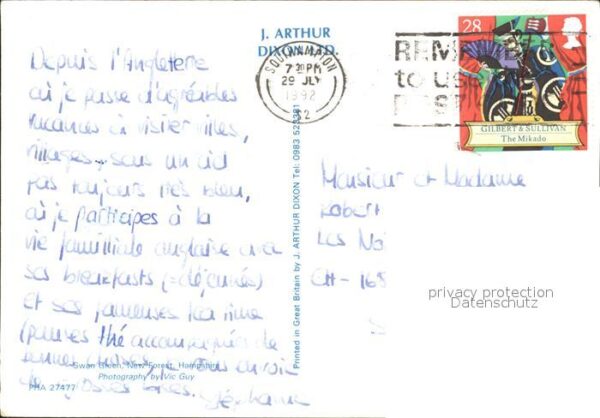 J. ARTHUR
DIXON LTD.
SOUTHAMPTON
7 30 PM
29 JLY
1992
REM
to use
28
GILBERT & SULLIVAN
The Mikado
Depuis l'Angleterre
où je passe d'agréables
vacances à visiter villes,
villages, sous un ciel
pas toujours très bleu,
où je participes à la
vie familiale anglaise avec
ses breakfasts (= déjeunés)
et ses fameuses tea time
(pauses thé accompagnées de
bonnes choses), je vous envoie
de grosses bises.
Stéphanie
Swan Green, New Forest, Hampshire
Photography by Vic Guy
PHA 27477
Printed in Great Britain by J. ARTHUR DIXON Tel: 0983 523381
Monsieur et Madame
Robert
Les
CH - 168
privacy protection
Datenschutz